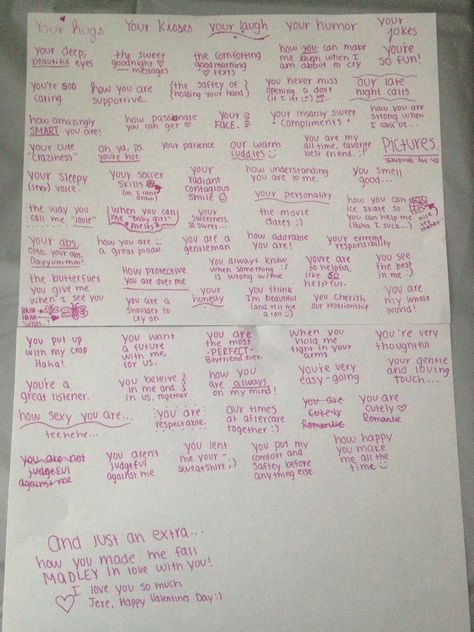 Your hugs
Your kisses
your laugh
your humor
your jokes
your deep, beautiful eyes
the sweet goodnight messages
the comforting goodmorning texts
how you can make me laugh when I am about to cry
you're so fun!
you're soo caring
how you are supportive.
{the saftey of holding your hand}
you never miss opening a door
our late night calls
how amazingly SMART you are!
how passionate you can get
your FACE.
your insany sweet compliments
how you are strong when I can't be...
your cute "craziness"
oh ya, ps. you're hot.
your patience
our warm cuddles
you are my all time, favorite best friend. ;P
PICTURES
your sleepy (sexy) voice.
your soccer skills
your radiant contagious smile
how understanding you are to me.
you smell good...
the way you call me "lovie"
when you call me "baby girl" melts
your sweetness, so sweet...
your personality
the movie dates :)
how you can skate so you can help me (haha I suck...)
your abs, OMG. your abs. Dayyummm!
how you are a great pillow.
you are a gentleman
how adorable you are!
your extreme responsibility
the butterflies you give me when I see you
How protective you are over me
you always know when something is wrong w/me
you're so helpful, like so helpful.
you see the best in me :)
you are a shoulder to cry on
your honesty
you think I'm beautiful
you cherish our relationship
you are my whole world!
you put up with my crap Haha!
you want a future with me, for us.
you are the most -PERFECT- Boyfriend ever.
when you hold me tight in your arms
you're very thoughtful
you're a great listener.
you beleive in me and in us, together
how you are always on my mind!
you're very easy-going
your gentle and loving touch...
how sexy you are... teehehe...
you are respectable.
our times at aftercare together :)
you are cutely Romantic
you are cutely Romantic
you are not judgeful against me
you aren't judgeful against me
you lent me your sweatshirt ;)
you put my comfort and saftey before anything else.
how happy you make me all the time
And just an extra...
how you made me fall
MADLEY in love with you!
I love you so much
Jere, Happy Valentines Day :)